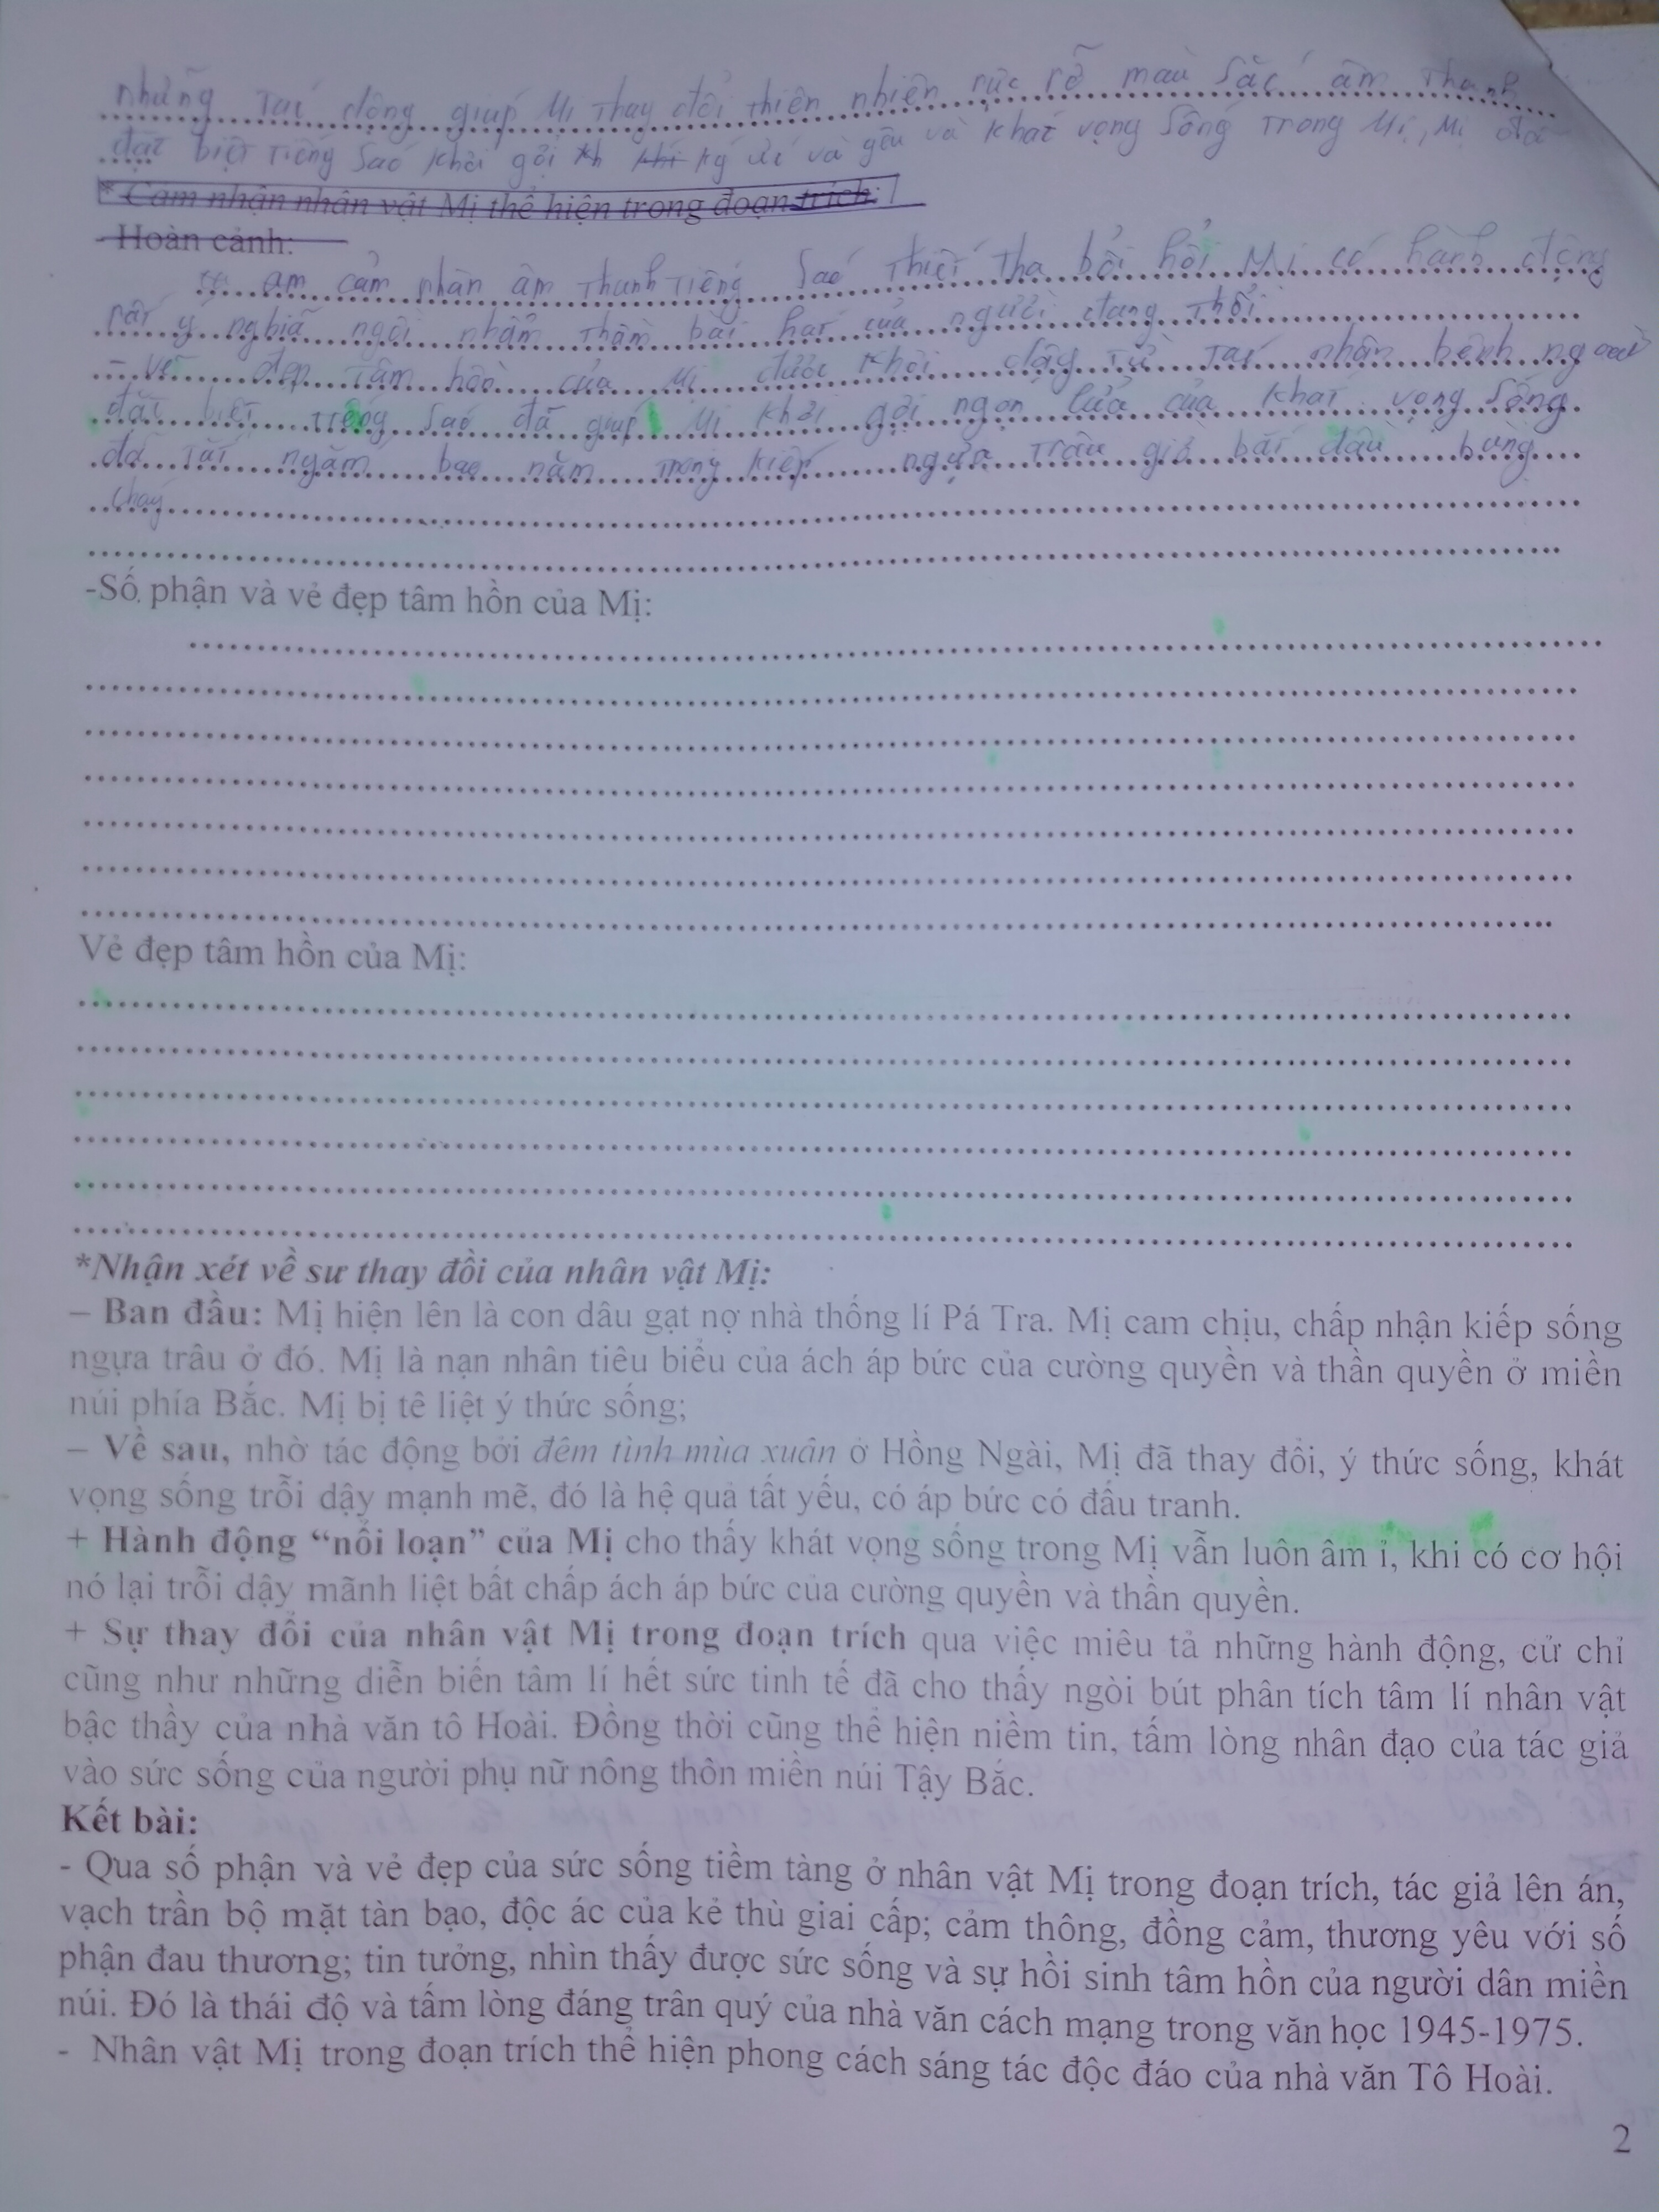 những tác động giúp Mị thay đổi thiên nhiên rực rỡ màu sắc âm thanh
đặc biệt tiếng sáo khơi gợi ký ức và yêu và khát vọng sống trong Mị, Mị đã
* Cảm nhận nhân vật Mị thể hiện trong đoạn trích:
- Hoàn cảnh:
am cảm nhận âm thanh tiếng sáo thiết tha bồi hồi Mị có hành động
rất ý nghĩa ngồi nhẩm thầm bài hát của người đang thổi
- vẻ đẹp tâm hồn của Mị được khơi dậy từ tác nhân bên ngoài
đặc biệt tiếng sáo đã giúp Mị khơi gợi ngọn lửa của khát vọng sống
đã tắt ngấm bao năm trong kiếp ngựa trâu giờ bắt đầu bùng
cháy
-Số phận và vẻ đẹp tâm hồn của Mị:
Vẻ đẹp tâm hồn của Mị:
*Nhận xét về sự thay đổi của nhân vật Mị:
– Ban đầu: Mị hiện lên là con dâu gạt nợ nhà thống lí Pá Tra. Mị cam chịu, chấp nhận kiếp sống
ngựa trâu ở đó. Mị là nạn nhân tiêu biểu của ách áp bức của cường quyền và thần quyền ở miền
núi phía Bắc. Mị bị tê liệt ý thức sống;
– Về sau, nhờ tác động bởi đêm tình mùa xuân ở Hồng Ngài, Mị đã thay đổi, ý thức sống, khát
vọng sống trỗi dậy mạnh mẽ, đó là hệ quả tất yếu, có áp bức có đấu tranh.
+ Hành động “nổi loạn” của Mị cho thấy khát vọng sống trong Mị vẫn luôn âm ỉ, khi có cơ hội
nó lại trỗi dậy mãnh liệt bất chấp ách áp bức của cường quyền và thần quyền.
+ Sự thay đổi của nhân vật Mị trong đoạn trích qua việc miêu tả những hành động, cử chỉ
cũng như những diễn biến tâm lí hết sức tinh tế đã cho thấy ngòi bút phân tích tâm lí nhân vật
bậc thầy của nhà văn tô Hoài. Đồng thời cũng thể hiện niềm tin, tấm lòng nhân đạo của tác giả
vào sức sống của người phụ nữ nông thôn miền núi Tậy Bắc.
Kết bài:
- Qua số phận và vẻ đẹp của sức sống tiềm tàng ở nhân vật Mị trong đoạn trích, tác giả lên án,
vạch trần bộ mặt tàn bạo, độc ác của kẻ thù giai cấp; cảm thông, đồng cảm, thương yêu với số
phận đau thương; tin tưởng, nhìn thấy được sức sống và sự hồi sinh tâm hồn của người dân miền
núi. Đó là thái độ và tấm lòng đáng trân quý của nhà văn cách mạng trong văn học 1945-1975.
- Nhân vật Mị trong đoạn trích thể hiện phong cách sáng tác độc đáo của nhà văn Tô Hoài.
2